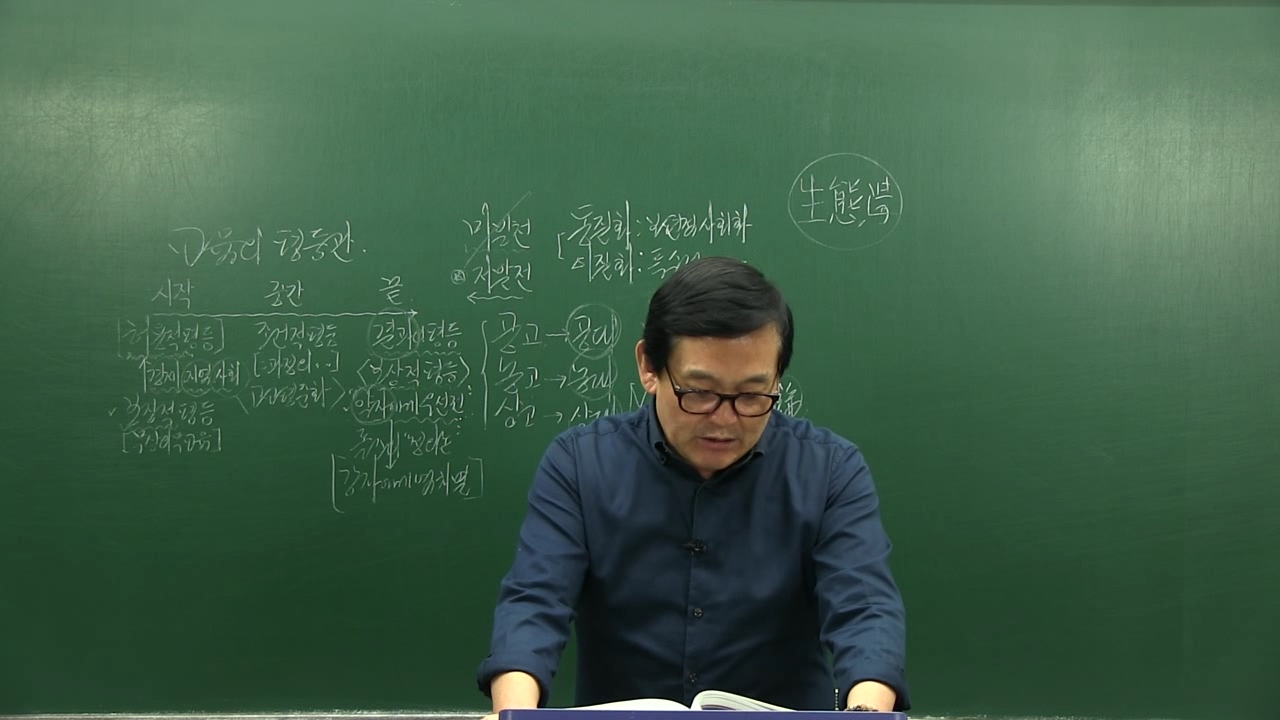 교육의 평등관.
시작 중간 끝
[허용적평등] 조건적평등 결과의평등
경제 지역사회 [:과정의..] <보상적평등>
보상적평등 고교평준화> 약자에게우선권
[강자에게역차별]
미발전
저발전
동질화:보편적사회화
이질화:특수
공고→공대
농고→농대
상고→상대
生態學